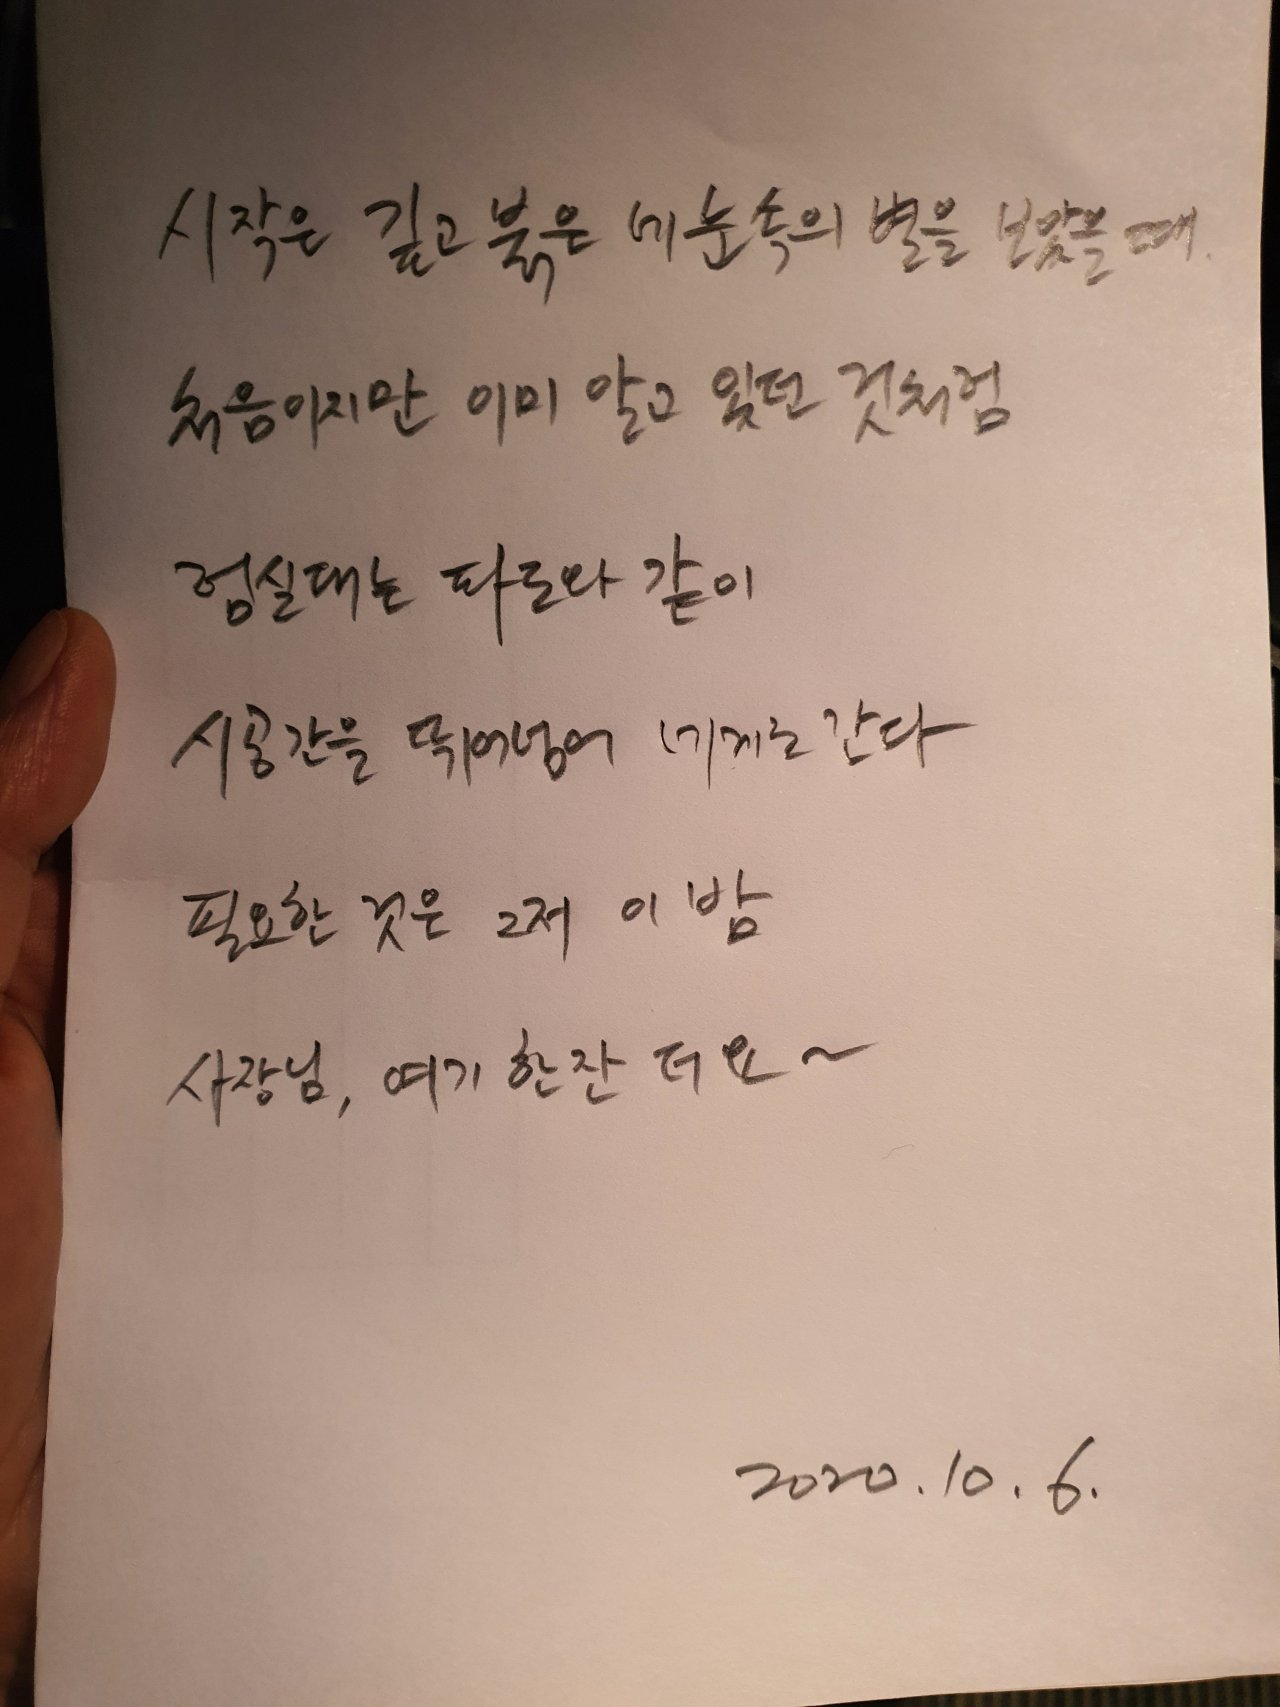 시작은 깊고 붉은 네 눈속의 별을 보았을 때.
처음이지만 이미 알고 있던 것처럼
넘실대는 파도와 같이
시공간을 뛰어넘어 네게로 간다
필요한 것은 그저 이 밤
사장님, 여기 한잔 더요~
2020.10.6.